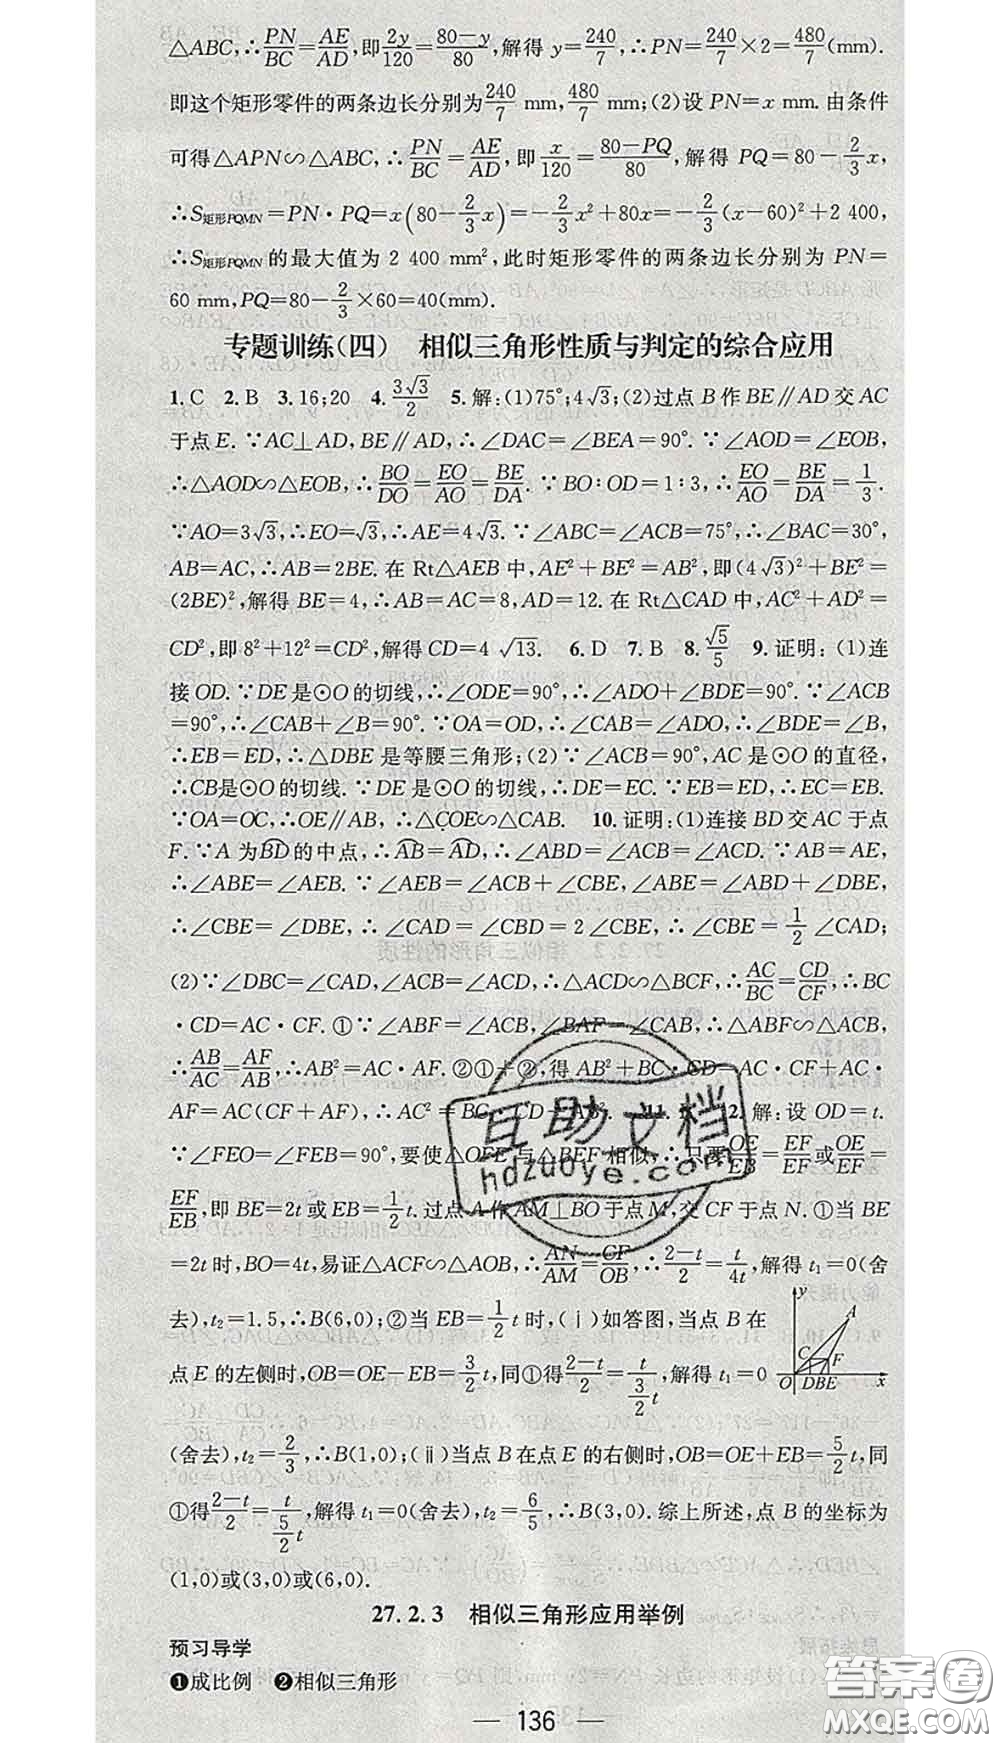 △ABC,∴PN/BC=AE/AD,即2y/120=(80-y)/80,解得 y=240/7,∴PN=240/7×2=480/7(mm).
即这个矩形零件的两条边长分别为240/7 mm,480/7 mm;(2)设 PN=x mm.由条件
可得△APN∽△ABC,∴PN/BC=AE/AD,即x/120=(80-PQ)/80,解得 PQ=80-2/3x,
∴S矩形PQMN=PN·PQ=x(80-2/3x)=-2/3x²+80x=-2/3(x-60)²+2 400,
∴S矩形PQMN的最大值为 2 400 mm²,此时矩形零件的两条边长分别为 PN=
60 mm,PQ=80-2/3×60=40(mm).
专题训练(四) 相似三角形性质与判定的综合应用
1.C 2.B 3.16;20 4.3√3/2 5.解:(1)75°;4√3;(2)过点 B 作 BE∥AD 交 AC
于点 E.∵AC⊥AD,BE∥AD,∴∠DAC=∠BEA=90°.∵∠AOD=∠EOB,
∴△AOD∽△EOB,∴BO/DO=EO/AO=BE/DA.∵BO:OD=1:3,∴EO/AO=BE/DA=1/3.
∵AO=3√3,∴EO=√3,∴AE=4√3.∵∠ABC=∠ACB=75°,∴∠BAC=30°,
AB=AC,∴AB=2BE.在 Rt△AEB 中,AE²+BE²=AB²,即(4√3)²+BE²=
(2BE)²,解得 BE=4,∴AB=AC=8,AD=12.在 Rt△CAD 中,AC²+AD²=
CD²,即 8²+12²=CD²,解得 CD=4√13. 6.D 7.B 8.√5/5 9.证明:(1)连
接 OD.∵DE 是⊙O 的切线,∴∠ODE=90°,∴∠ADO+∠BDE=90°.∵∠ACB
=90°,∴∠CAB+∠B=90°.∵OA=OD,∴∠CAB=∠ADO,∴∠BDE=∠B,
∴EB=ED,∴△DBE 是等腰三角形;(2)∵∠ACB=90°,AC 是⊙O 的直径,
∴CB是⊙O 的切线.∵DE 是⊙O 的切线,∴DE=EC.∵EB=ED,∴EC=EB.
∵OA=OC,∴OE∥AB,∴△COE∽△CAB. 10.证明:(1)连接 BD 交 AC 于点
F.∵A 为BD的中点,∴AB=AD,∴∠ABD=∠ACB=∠ACD.∵AB=AE,
∴∠ABE=∠AEB.∵∠AEB=∠ACB+∠CBE,∠ABE=∠ABD+∠DBE,
∴∠CBE=∠DBE,∴∠CAD=∠CBD=2∠CBE,∴∠CBE=1/2∠CAD;
(2)∵∠DBC=∠CAD,∠ACB=∠ACD,∴△ACD∽△BCF,∴AC/BC=CD/CF,∴BC
·CD=AC·CF.①∵∠ABF=∠ACB,∠BAF=∠CAB,∴△ABF∽△ACB,
∴AB/AC=AF/AB,∴AB²=AC·AF.②①+②,得 AB²+BC·CD=AC·CF+AC·
AF=AC(CF+AF),∴AC²=BC·CD+AB². 2.解:设 OD=t.
∵∠FEO=∠FEB=90°,要使△OEF 与△BEF 相似,∴只要OE/EB=EF/EF或OE/EF=
EF/EB,即 BE=2t 或 EB=1/2t.过点 A 作 AM⊥BO 于点 M,交 CF 于点 N.①当 BE
=2t 时,BO=4t,易证△ACF∽△AOB,∴AN/AM=CF/OB,∴(2-t)/2=t/4t,解得 t₁=0(舍
去),t₂=1.5,∴B(6,0);②当 EB=1/2t 时,(ⅰ)如答图,当点 B 在
点 E 的左侧时,OB=OE-EB=3/2t,同①得(2-t)/2=t/(3/2t),解得 t₁=0
(舍去),t₂=2/3,∴B(1,0);(ⅱ)当点 B 在点 E 的右侧时,OB=OE+EB=5/2t,同
①得(2-t)/2=t/(5/2t),解得 t₁=0(舍去),t₂=6/5,∴B(3,0).综上所述,点 B 的坐标为
(1,0)或(3,0)或(6,0).
y A C F O DBE x
27.2.3 相似三角形应用举例
预习导学
❶成比例 ❷相似三角形
— 136 —
互助文档
hdzuoye.com
答案圈
MXQE.COM